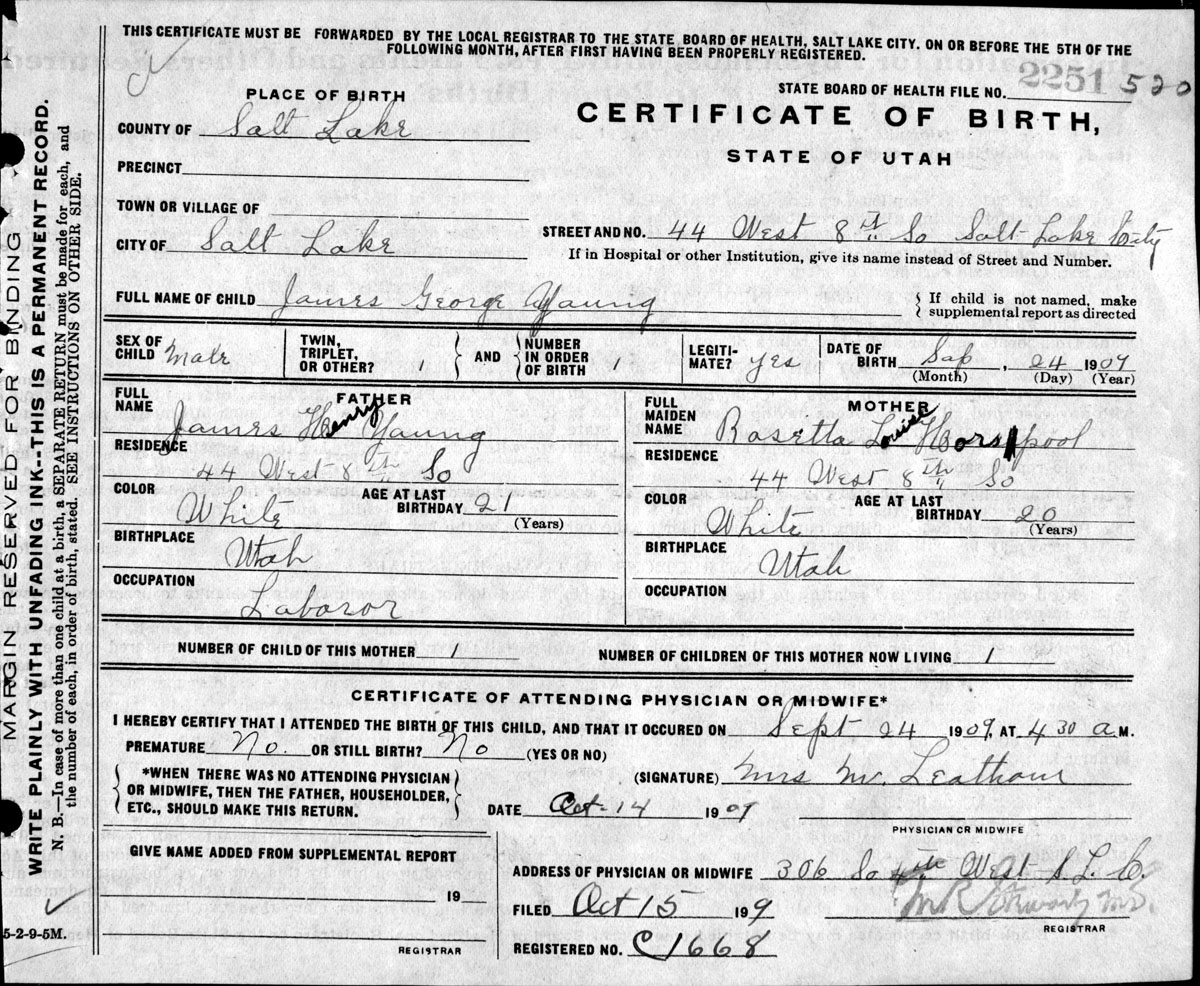 THIS CERTIFICATE MUST BE FORWARDED BY THE LOCAL REGISTRAR TO THE STATE BOARD OF HEALTH, SALT LAKE CITY. ON OR BEFORE THE 5TH OF THE
FOLLOWING MONTH, AFTER FIRST HAVING BEEN PROPERLY REGISTERED.
STATE BOARD OF HEALTH FILE NO. 2251 520
PLACE OF BIRTH
CERTIFICATE OF BIRTH,
STATE OF UTAH
COUNTY OF Salt Lake
PRECINCT
TOWN OR VILLAGE OF
CITY OF Salt Lake
STREET AND NO. 44 West 8th So Salt Lake City
If in Hospital or other Institution, give its name instead of Street and Number.
FULL NAME OF CHILD James George Young
If child is not named, make
supplemental report as directed
SEX OF CHILD Male
TWIN, TRIPLET, OR OTHER? 1
AND
NUMBER IN ORDER OF BIRTH 1
LEGITI-MATE? yes
DATE OF BIRTH Sep. 24 1909
(Month) (Day) (Year)
FATHER
FULL NAME James Henry Young
RESIDENCE
44 West 8th So
COLOR White
AGE AT LAST BIRTHDAY 21
(Years)
BIRTHPLACE
Utah
OCCUPATION
Laboror
MOTHER
FULL MAIDEN NAME Rosetta Louise Horspool
RESIDENCE
44 West 8th So
COLOR White
AGE AT LAST BIRTHDAY 20
(Years)
BIRTHPLACE
Utah
OCCUPATION
NUMBER OF CHILD OF THIS MOTHER 1
NUMBER OF CHILDREN OF THIS MOTHER NOW LIVING 1
CERTIFICATE OF ATTENDING PHYSICIAN OR MIDWIFE*
I HEREBY CERTIFY THAT I ATTENDED THE BIRTH OF THIS CHILD, AND THAT IT OCCURED ON Sept 24 1909, AT 4 30 a M.
PREMATURE No. OR STILL BIRTH? No (YES OR NO)
*WHEN THERE WAS NO ATTENDING PHYSICIAN
OR MIDWIFE, THEN THE FATHER, HOUSEHOLDER,
ETC., SHOULD MAKE THIS RETURN.
(SIGNATURE) Mrs M.
DATE Oct-14 1909
PHYSICIAN OR MIDWIFE
GIVE NAME ADDED FROM SUPPLEMENTAL REPORT
19
REGISTRAR
ADDRESS OF PHYSICIAN OR MIDWIFE 306 So West S. L. C.
FILED Oct 15 199
REGISTRAR
REGISTERED NO. C1668
MARGIN RESERVED FOR BINDING
WRITE PLAINLY WITH UNFADING INK--THIS IS A PERMANENT RECORD.
N. B.—In case of more than one child at a birth, a SEPARATE RETURN must be made for each, and
the number of each, in order of birth, stated. SEE INSTRUCTIONS ON OTHER SIDE.
5-2-9-5M.